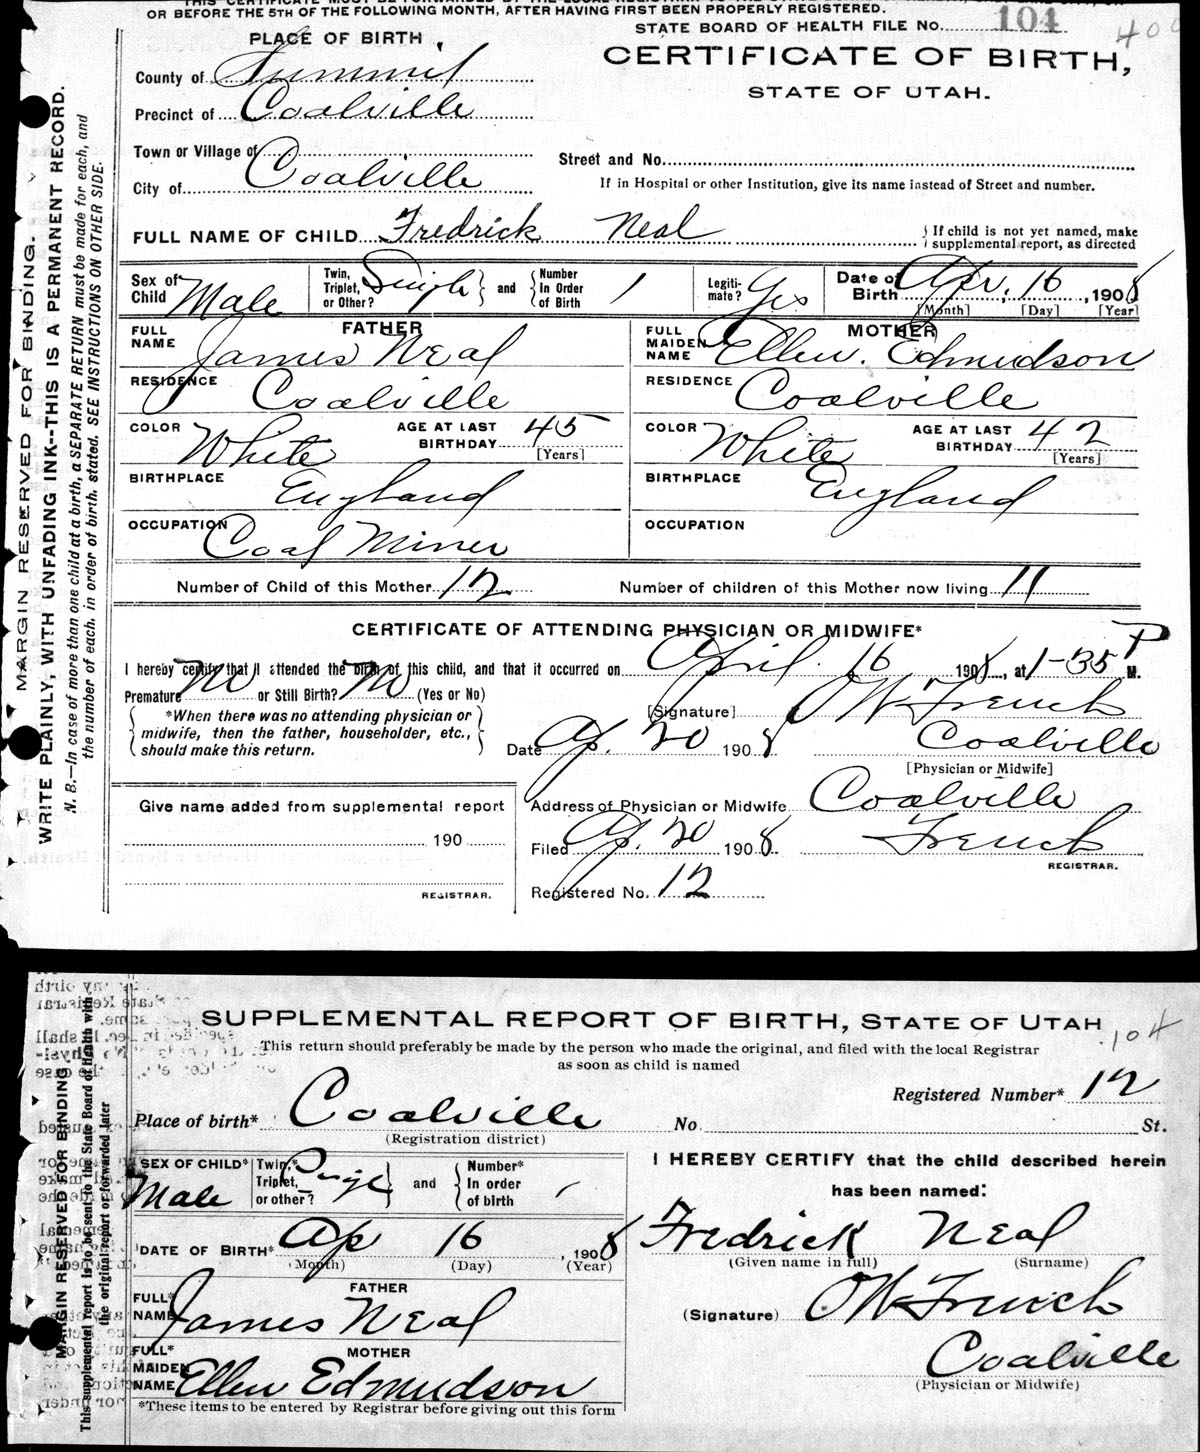 OR BEFORE THE 5TH OF THE FOLLOWING MONTH, AFTER HAVING FIRST BEEN PROPERLY REGISTERED.
STATE BOARD OF HEALTH FILE No. 104
400
PLACE OF BIRTH
CERTIFICATE OF BIRTH,
STATE OF UTAH.
County of Summit
Precinct of Coalville
Town or Village of
City of Coalville
Street and No.
If in Hospital or other Institution, give its name instead of Street and number.
FULL NAME OF CHILD Fredrick Neal
If child is not yet named, make
supplemental report, as directed
Sex of Child Male
Twin, Triplet, or Other? Single and Number In Order of Birth 1
Legitimate? Yes
Date of Birth Apr. 16, 1908
[Month] [Day] [Year]
FATHER
FULL NAME James Neal
RESIDENCE Coalville
COLOR White AGE AT LAST BIRTHDAY 45
[Years]
BIRTHPLACE England
OCCUPATION Coal Miner
MOTHER
FULL MAIDEN NAME Ellen. Edmudson
RESIDENCE Coalville
COLOR White AGE AT LAST BIRTHDAY 42
[Years]
BIRTHPLACE England
OCCUPATION
Number of Child of this Mother 12 Number of children of this Mother now living 11
CERTIFICATE OF ATTENDING PHYSICIAN OR MIDWIFE*
I hereby certify that I attended the birth of this child, and that it occurred on April. 16 1908, at 1-35 P M.
Premature or Still Birth? (Yes or No)
*When there was no attending physician or
midwife, then the father, householder, etc.,
should make this return.
[Signature] O W French
Date Ap. 20 1908 Coalville
[Physician or Midwife]
Give name added from supplemental report
190
REGISTRAR.
Address of Physician or Midwife Coalville
Filed Ap. 20 1908 French
REGISTRAR.
Registered No. 12
MARGIN RESERVED FOR BINDING.
WRITE PLAINLY, WITH UNFADING INK--THIS IS A PERMANENT RECORD.
N. B.—In case of more than one child at a birth, a SEPARATE RETURN must be made for each, and
the number of each, in order of birth, stated. SEE INSTRUCTIONS ON OTHER SIDE.
SUPPLEMENTAL REPORT OF BIRTH, STATE OF UTAH
104
This return should preferably be made by the person who made the original, and filed with the local Registrar
as soon as child is named
Registered Number* 12
Place of birth* Coalville No. St.
(Registration district)
SEX OF CHILD* Male
Twin,* Triplet, or other? and Number* In order of birth 1
DATE OF BIRTH* Ap 16, 1908
(Month) (Day) (Year)
FATHER
FULL* NAME James Neal
MOTHER
FULL* MAIDEN NAME Ellen Edmudson
*These items to be entered by Registrar before giving out this form
I HEREBY CERTIFY that the child described herein
has been named:
Fredrick Neal
(Given name in full) (Surname)
(Signature) O W French
Coalville
(Physician or Midwife)
MARGIN RESERVED FOR BINDING
This supplemental report is to be sent to the State Board of Health with
the original report or forwarded later